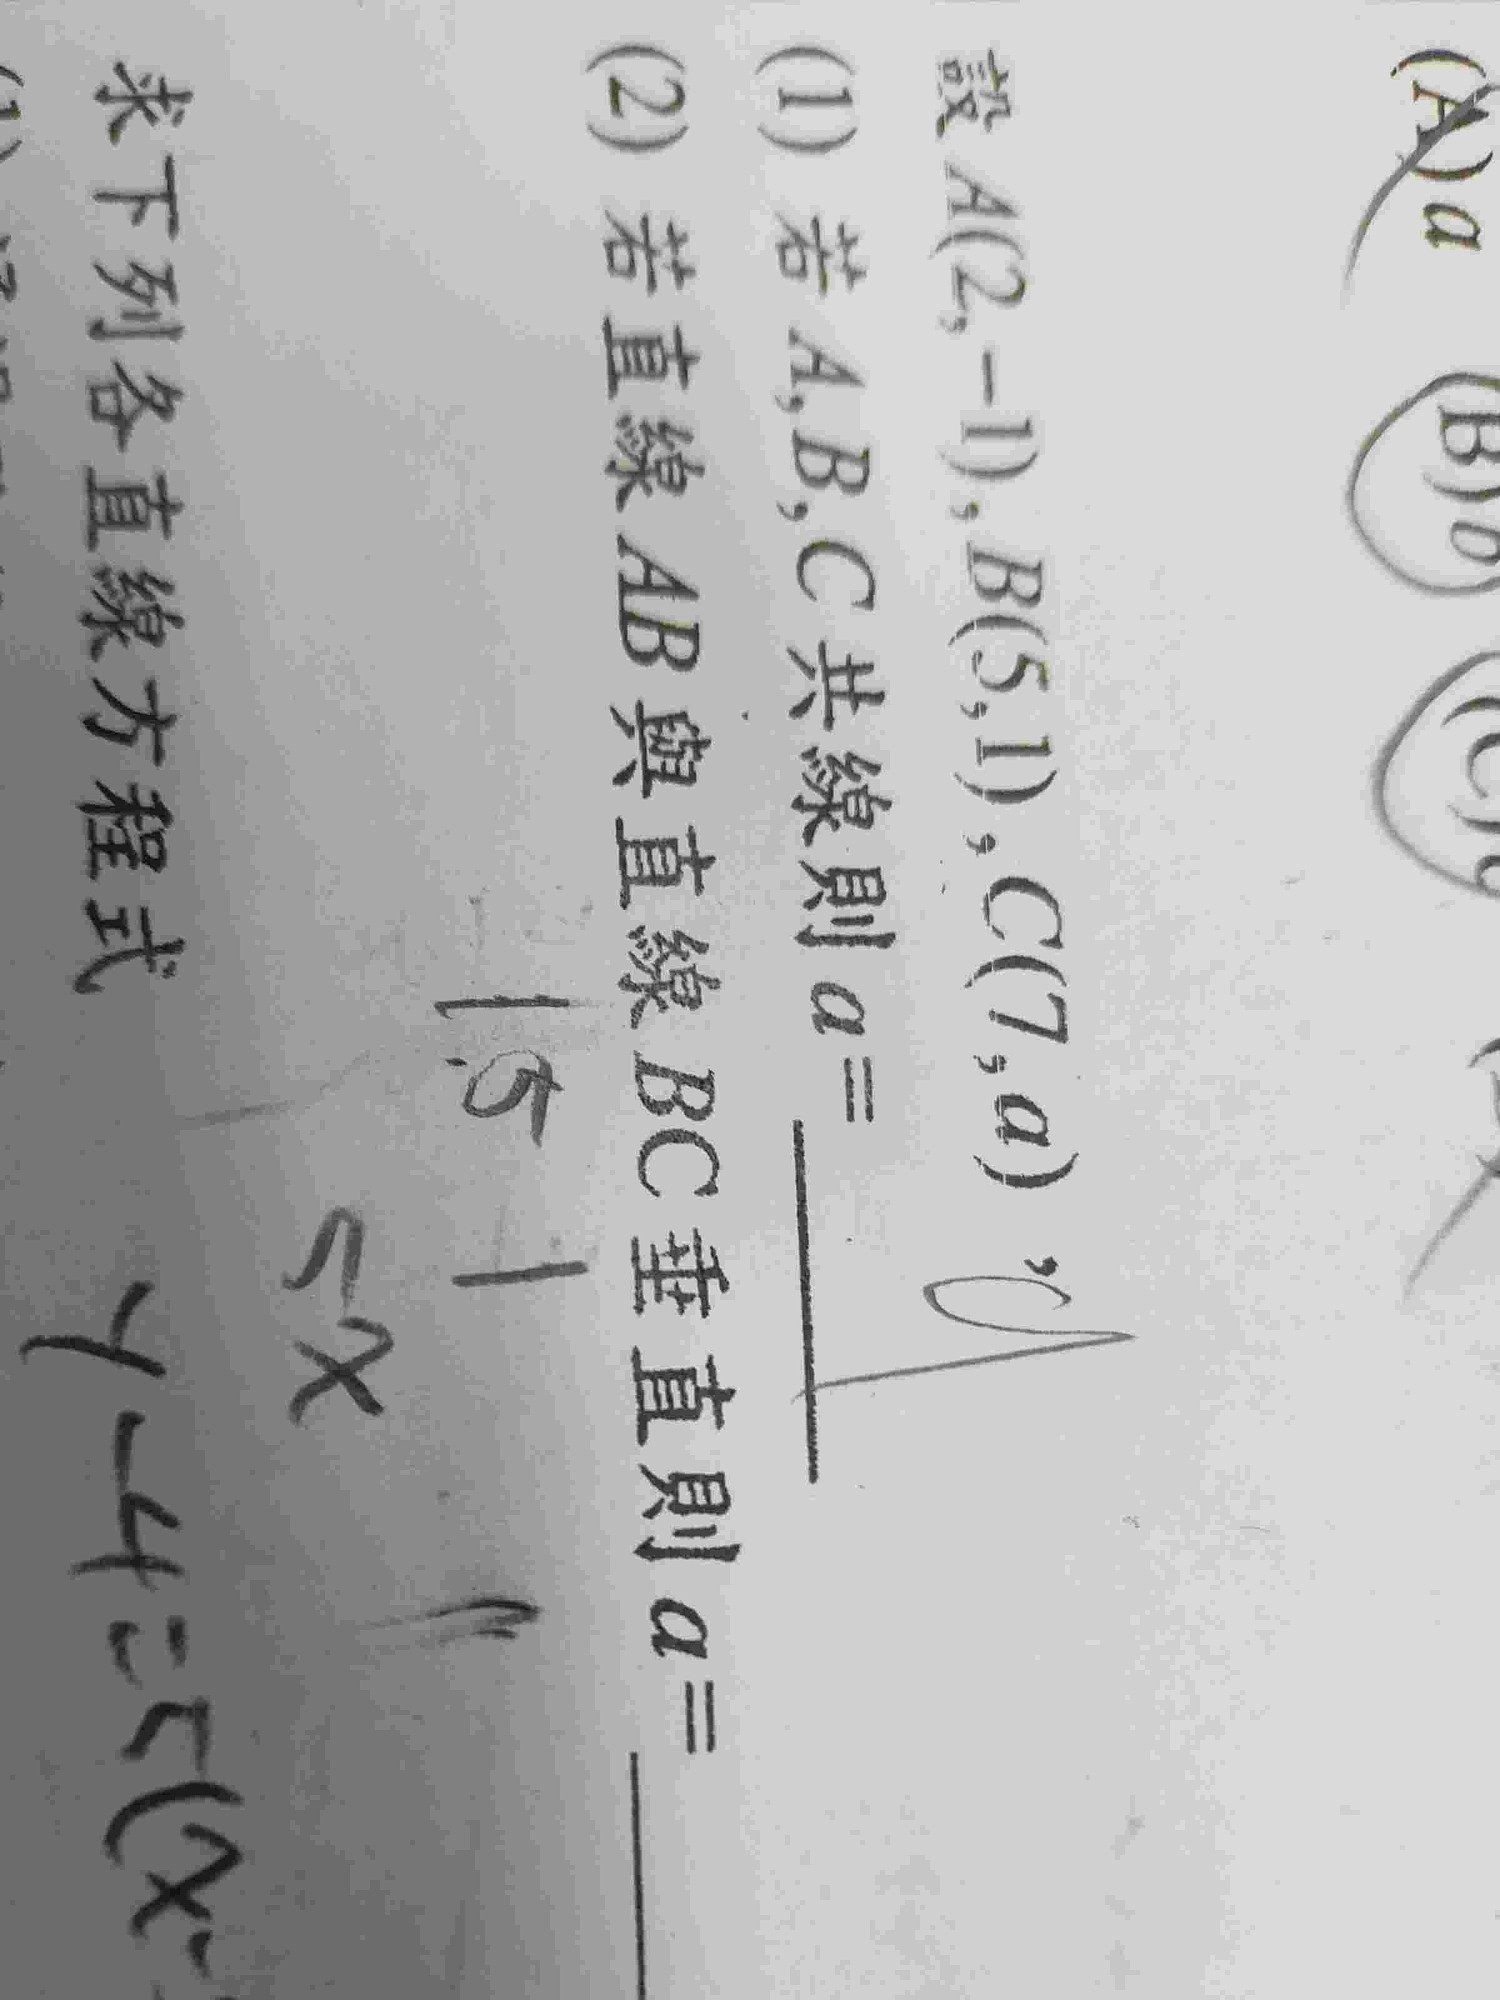 (A) a (B) b (C)
設 A(2,−1),B(5,1),C(7,a),
(1) 若 A,B,C 共線則 a=
(2) 若直線 AB 與直線 BC 垂直則 a=
1.5
5x
求下列各直線方程式
y-4=5(x-